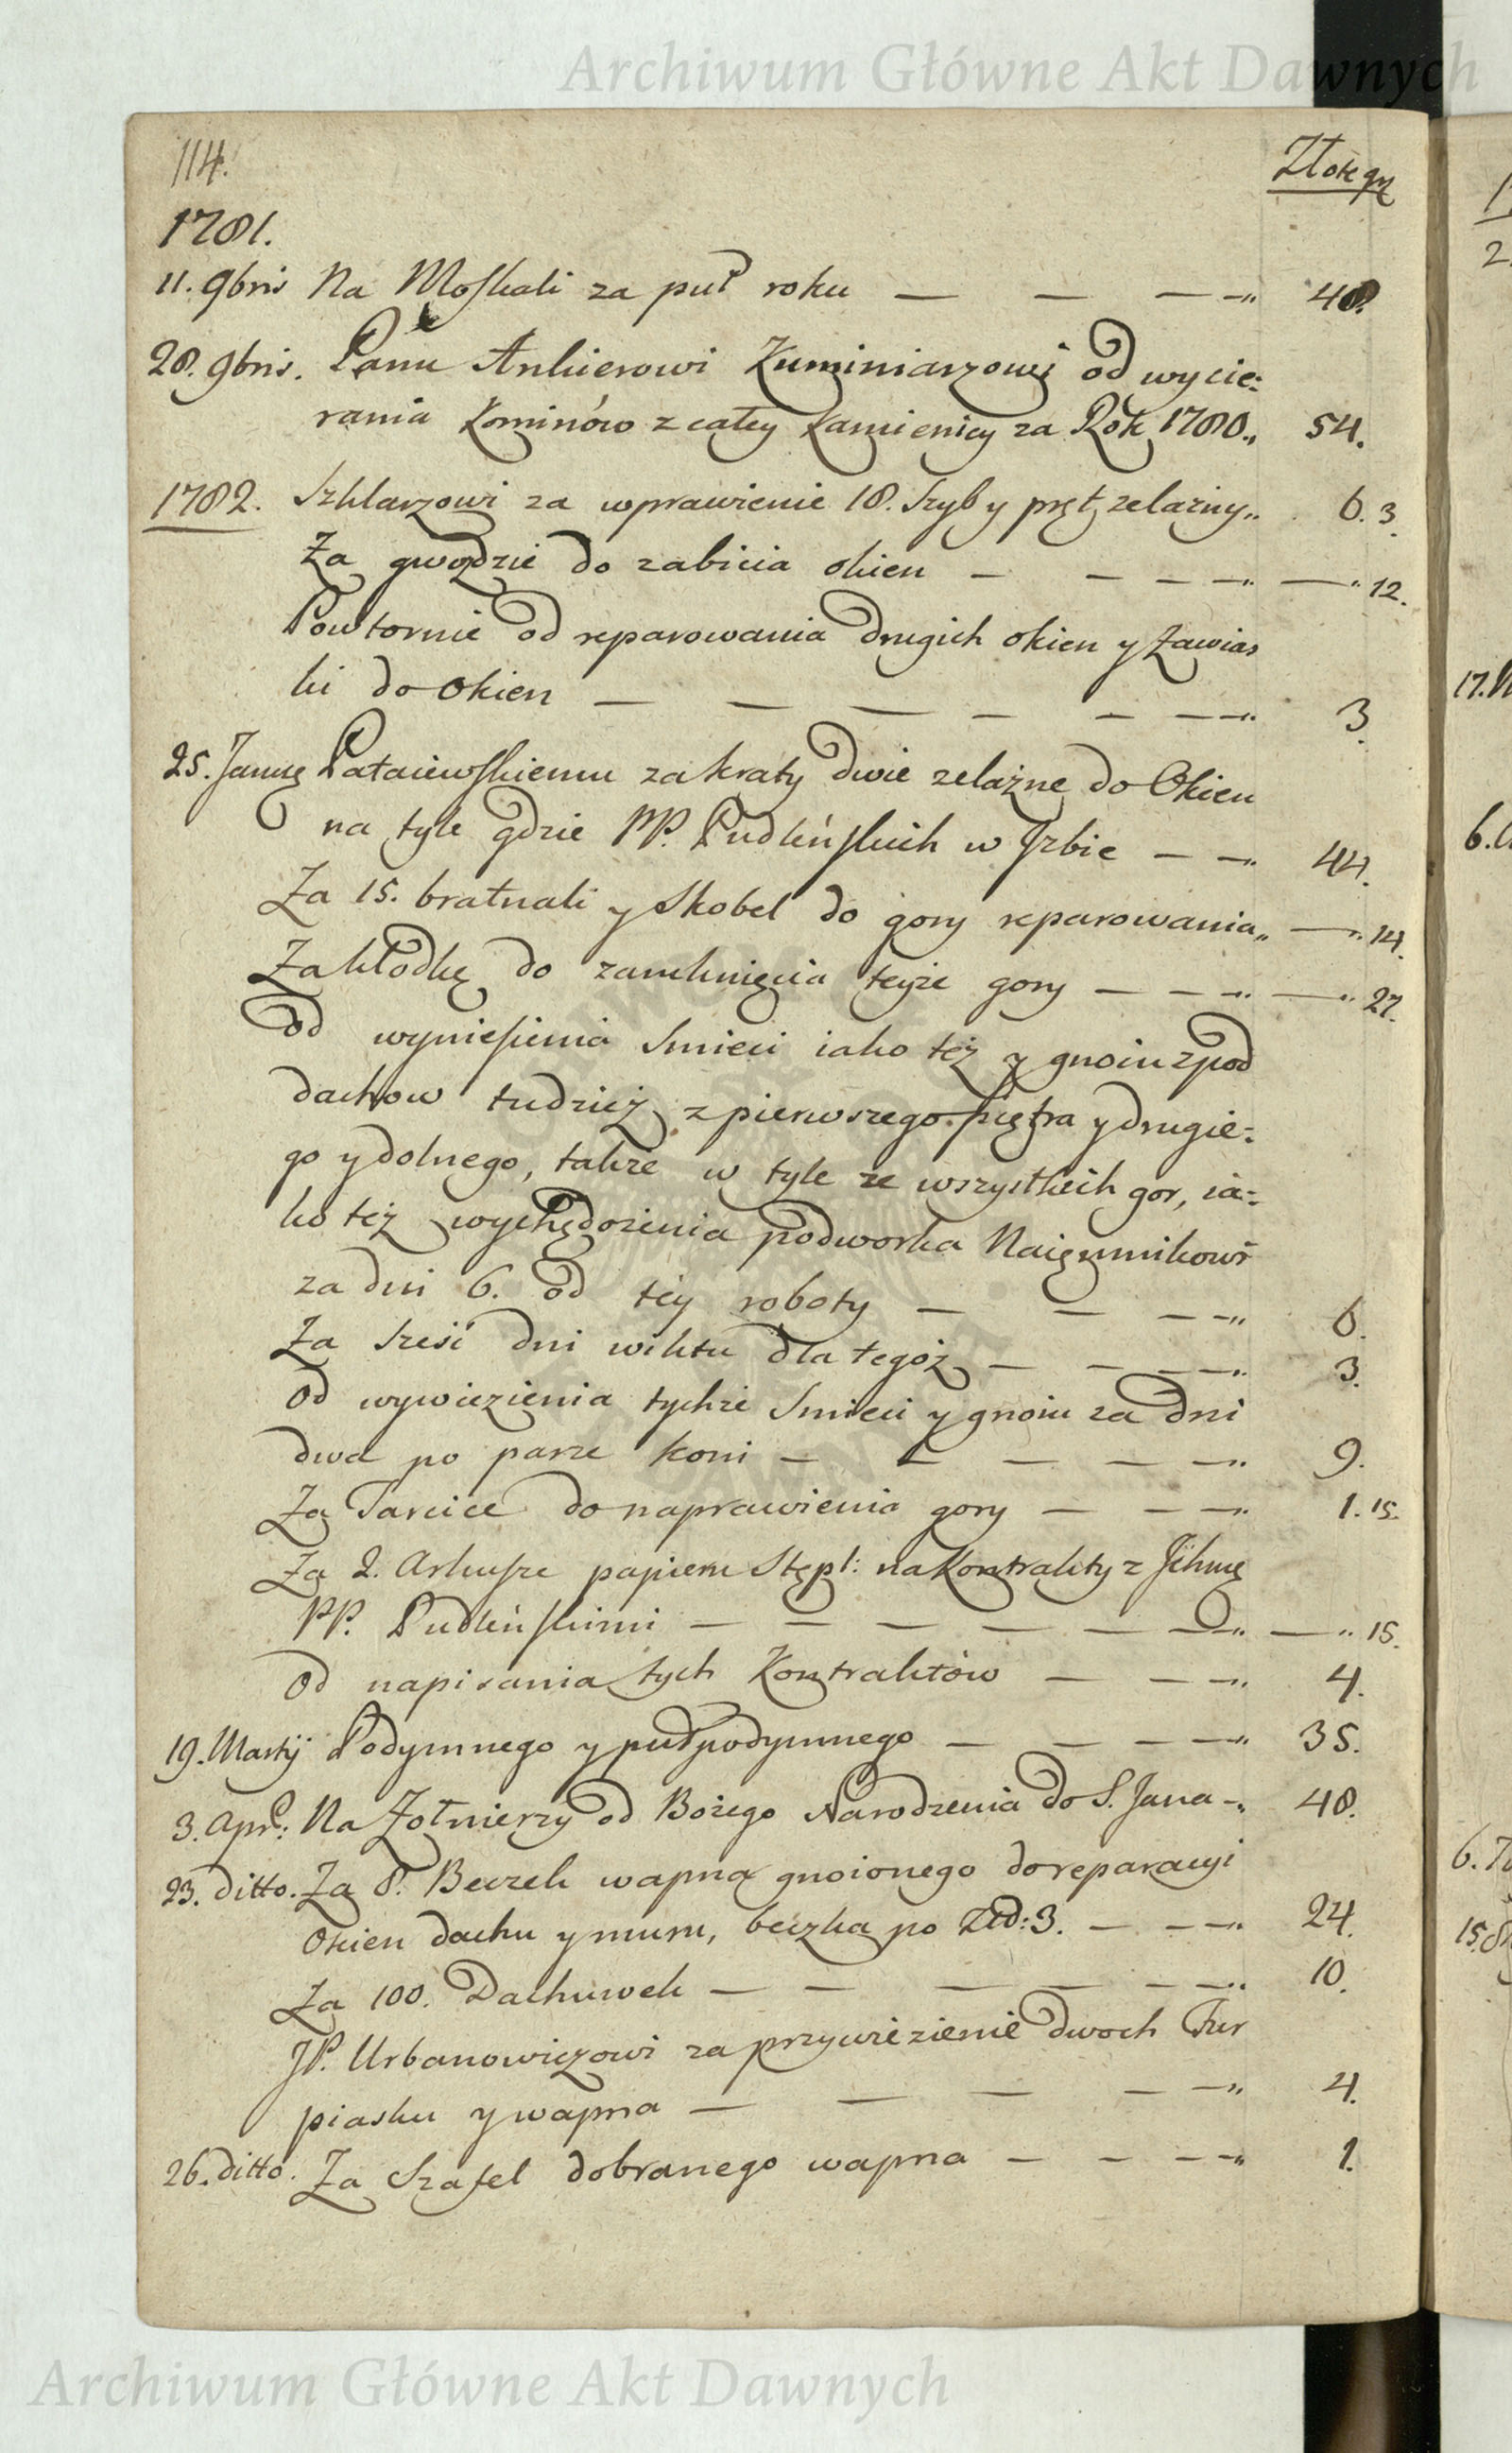 Archiwum Główne Akt Dawnych
114.
Złote gr
1781.
11. 9bris Na Moskali za puł roku — — — „ 48.
28. 9bris. Panu Ankierowi Kuminiarzowi od wycie:
rania Kominów z całey kamienicy za Rok 1780. „ 54.
1782. Szklarzowi za wprawienie 18. Szyb y pręt zelazny „ 6. 3
Za gwozdzie do zabicia okien — — — — „ — „ 12.
Powtornie od reparowania drugich okien y zawias
ki do Okien — — — — — — „ 3
25. Janu: Pataiewskiemu za kraty dwie zelazne do Okien
na tyle gdzie PP. Pudleńskich w Izbie — — „ 44.
Za 15. bratnali y Skobel do gory reparowania „ — „ 14.
Za kłodkę do zamknięcia teyże gory — — — „ — „ 27.
od wyniesienia Smieci iako też y gnoiu z pod
dachow tudzież z pierwszego piętra y drugie:
go y dolnego, także w tyle ze wszystkich gor, ia:
ko też wychędożenia podworka Naięmnikowi
za dni 6. od tey roboty — — — — „ 6.
Za sześć dni wiktu dla tegóż — — — — „ 3.
Od wywiezienia tychże Smieci y gnoiu za dni
dwa po parze koni — — — — — „ 9.
Za Tarcice do naprawienia gory — — — „ 1. 15.
Za 2. Arkusze papieru Stępl: na Kontrakty z Ichmę
PP. Pudleńskimi — — — — — — „ — „ 15.
Od napisania tych Kontraktów — — — „ 4.
19. Martij Podymnego y pułpodymnego — — — — „ 35.
3. Apr: Na Zołnierzy od Bożego Narodzenia do S. Jana — „ 48.
23. ditto. Za 8. Beczek wapna gnoionego do reparacyi
Okien dachu y muru, beczka po Zło: 3. — — — „ 24.
Za 100. Dachuwek — — — — — — „ 10.
JP. Urbanowiczowi za przywiezienie dwoch Fur
piasku y wapna — — — — — „ 4.
26. ditto. Za Szafel dobranego wapna — — — — „ 1.
Archiwum Główne Akt Dawnych